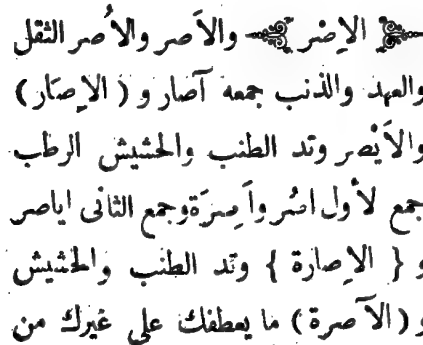 ﴿ الاِصْر ﴾ والاَصر والاُصر الثقل
والعهد والذنب جمعه آصار و ( الاِصَار )
والاَيْصر وتد الطنب والحشيش الرطب
جمع لأول اصُر وآصِرَة وجمع الثانى اياصر
و { الاِصارة } وتد الطنب والحشيش
و ( الآصرة ) ما يعطفك على غيرك من